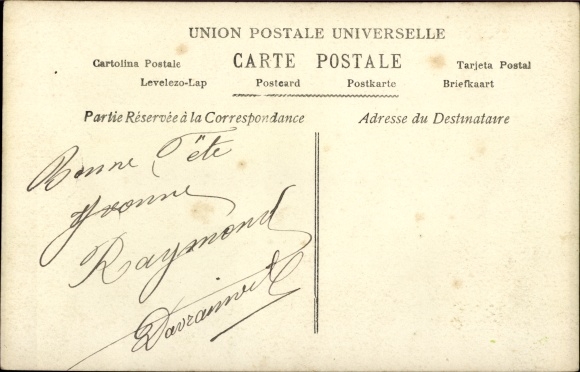 UNION POSTALE UNIVERSELLE
Cartolina Postale CARTE POSTALE Tarjeta Postal
Levelezo-Lap Postcard Postkarte Briefkaart
Partie Réservée à la Correspondance Adresse du Destinataire
Bonne Fête
Yvonne
Raymond